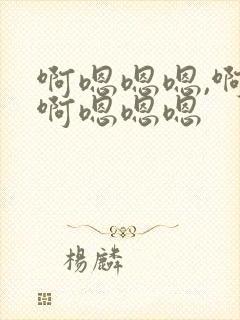 啊嗯嗯嗯,啊
啊嗯嗯嗯
楊麟